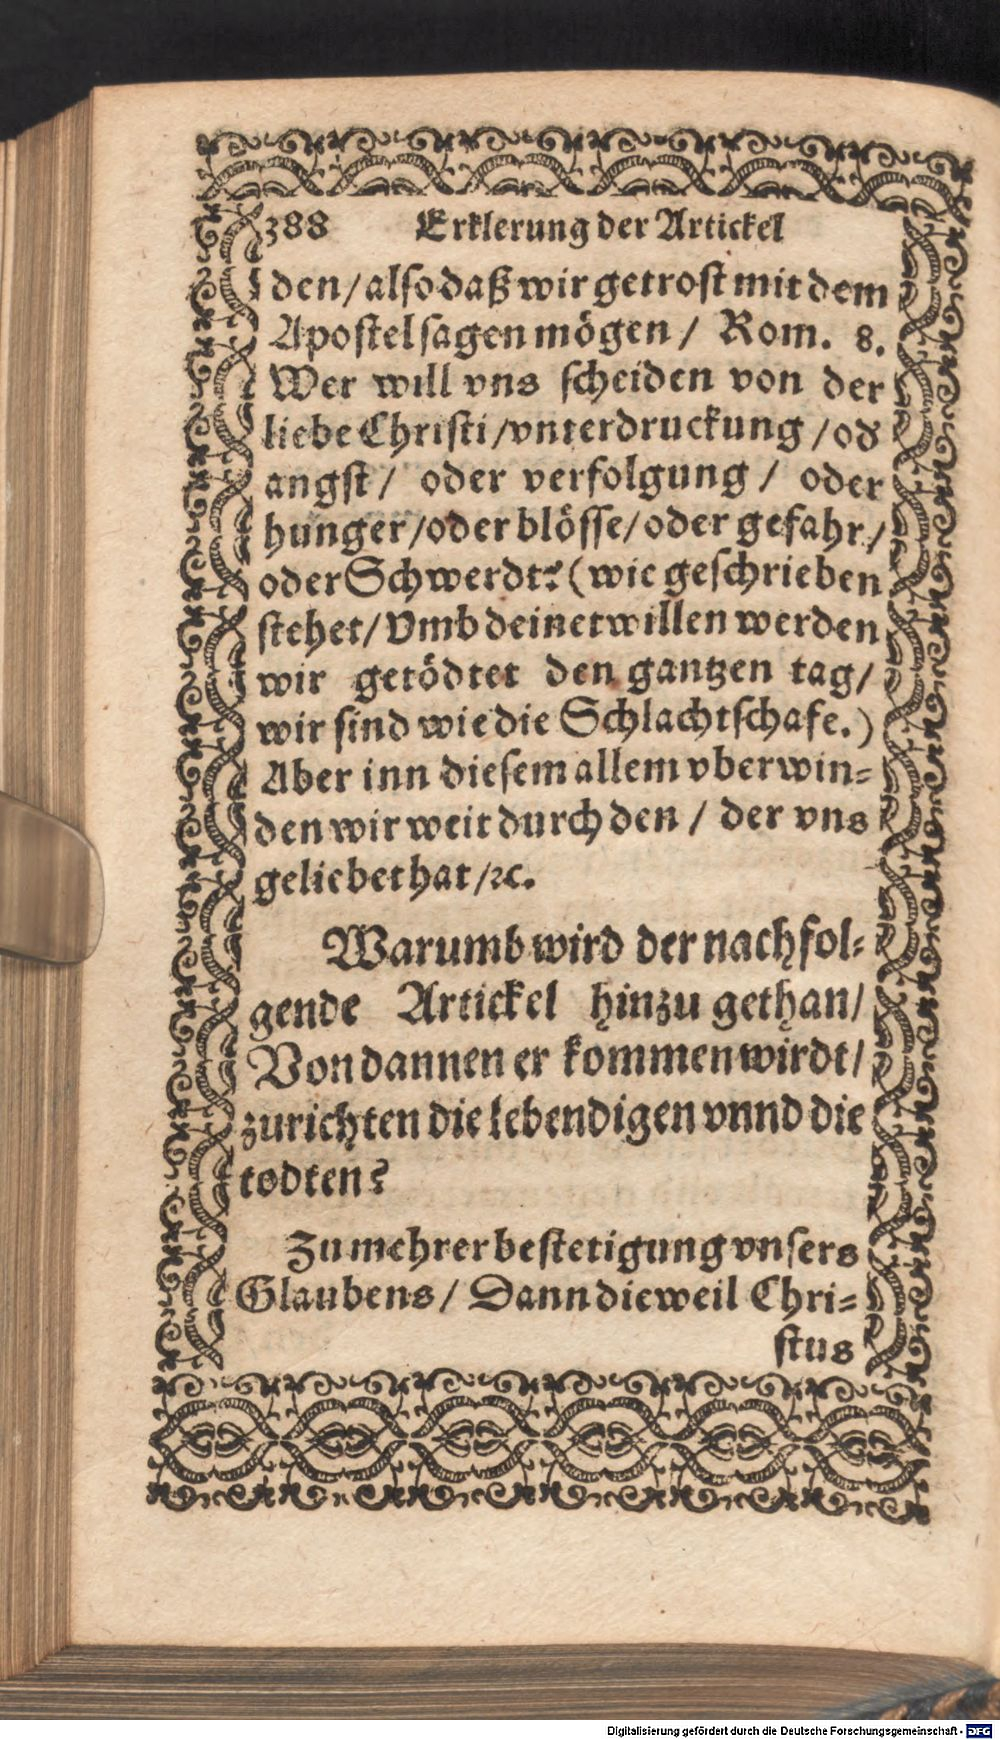 388 Erklerung der Artickel
den/ also daß wir getrost mit dem
Apostel sagen mögen/ Rom. 8.
Wer will vns scheiden von der
liebe Christi/vnterdruckung/od
angst/ oder verfolgung/ oder
hunger/oder blösse/oder gefahr/
oder Schwerdt? (wie geschrieben
stehet/ Vmb deinetwillen werden
wir getödtet den gantzen tag/
wir sind wie die Schlachtschafe.)
Aber inn diesem allem vberwin-
den wir weit durch den/ der vns
geliebet hat/ꝛc.
Warumb wird der nachfol-
gende Artickel hinzu gethan/
Von dannen er kommen wirdt/
zurichten die lebendigen vnnd die
todten?
Zu mehrer bestetigung vnsers
Glaubens/ Dann dieweil Chri-
stus
Digitalisierung gefördert durch die Deutsche Forschungsgemeinschaft - DFG